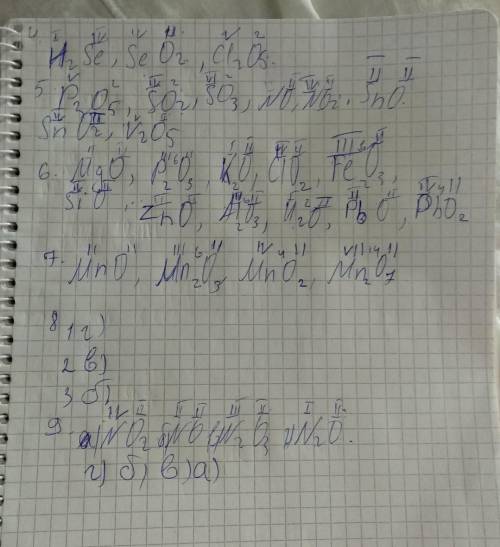 4. H₂Se, SeO₂, Cl₂O₅.
5. P₂O₅, SO₂, SO₃, NO, NO₂, SnO
SnO₂, V₂O₅
6. MgO, P₂O₃, K₂O, ClO₂, Fe₂O₃,
SiO, ZnO, Al₂O₃, H₂O, PbO, PbO₂
7. MnO, Mn₂O₃, MnO₂, Mn₂O₇
8 1 г)
2 в)
3 б)
9. а) NO₂ б) NO в) N₂O₃ г) N₂O.
г) б) в) а)